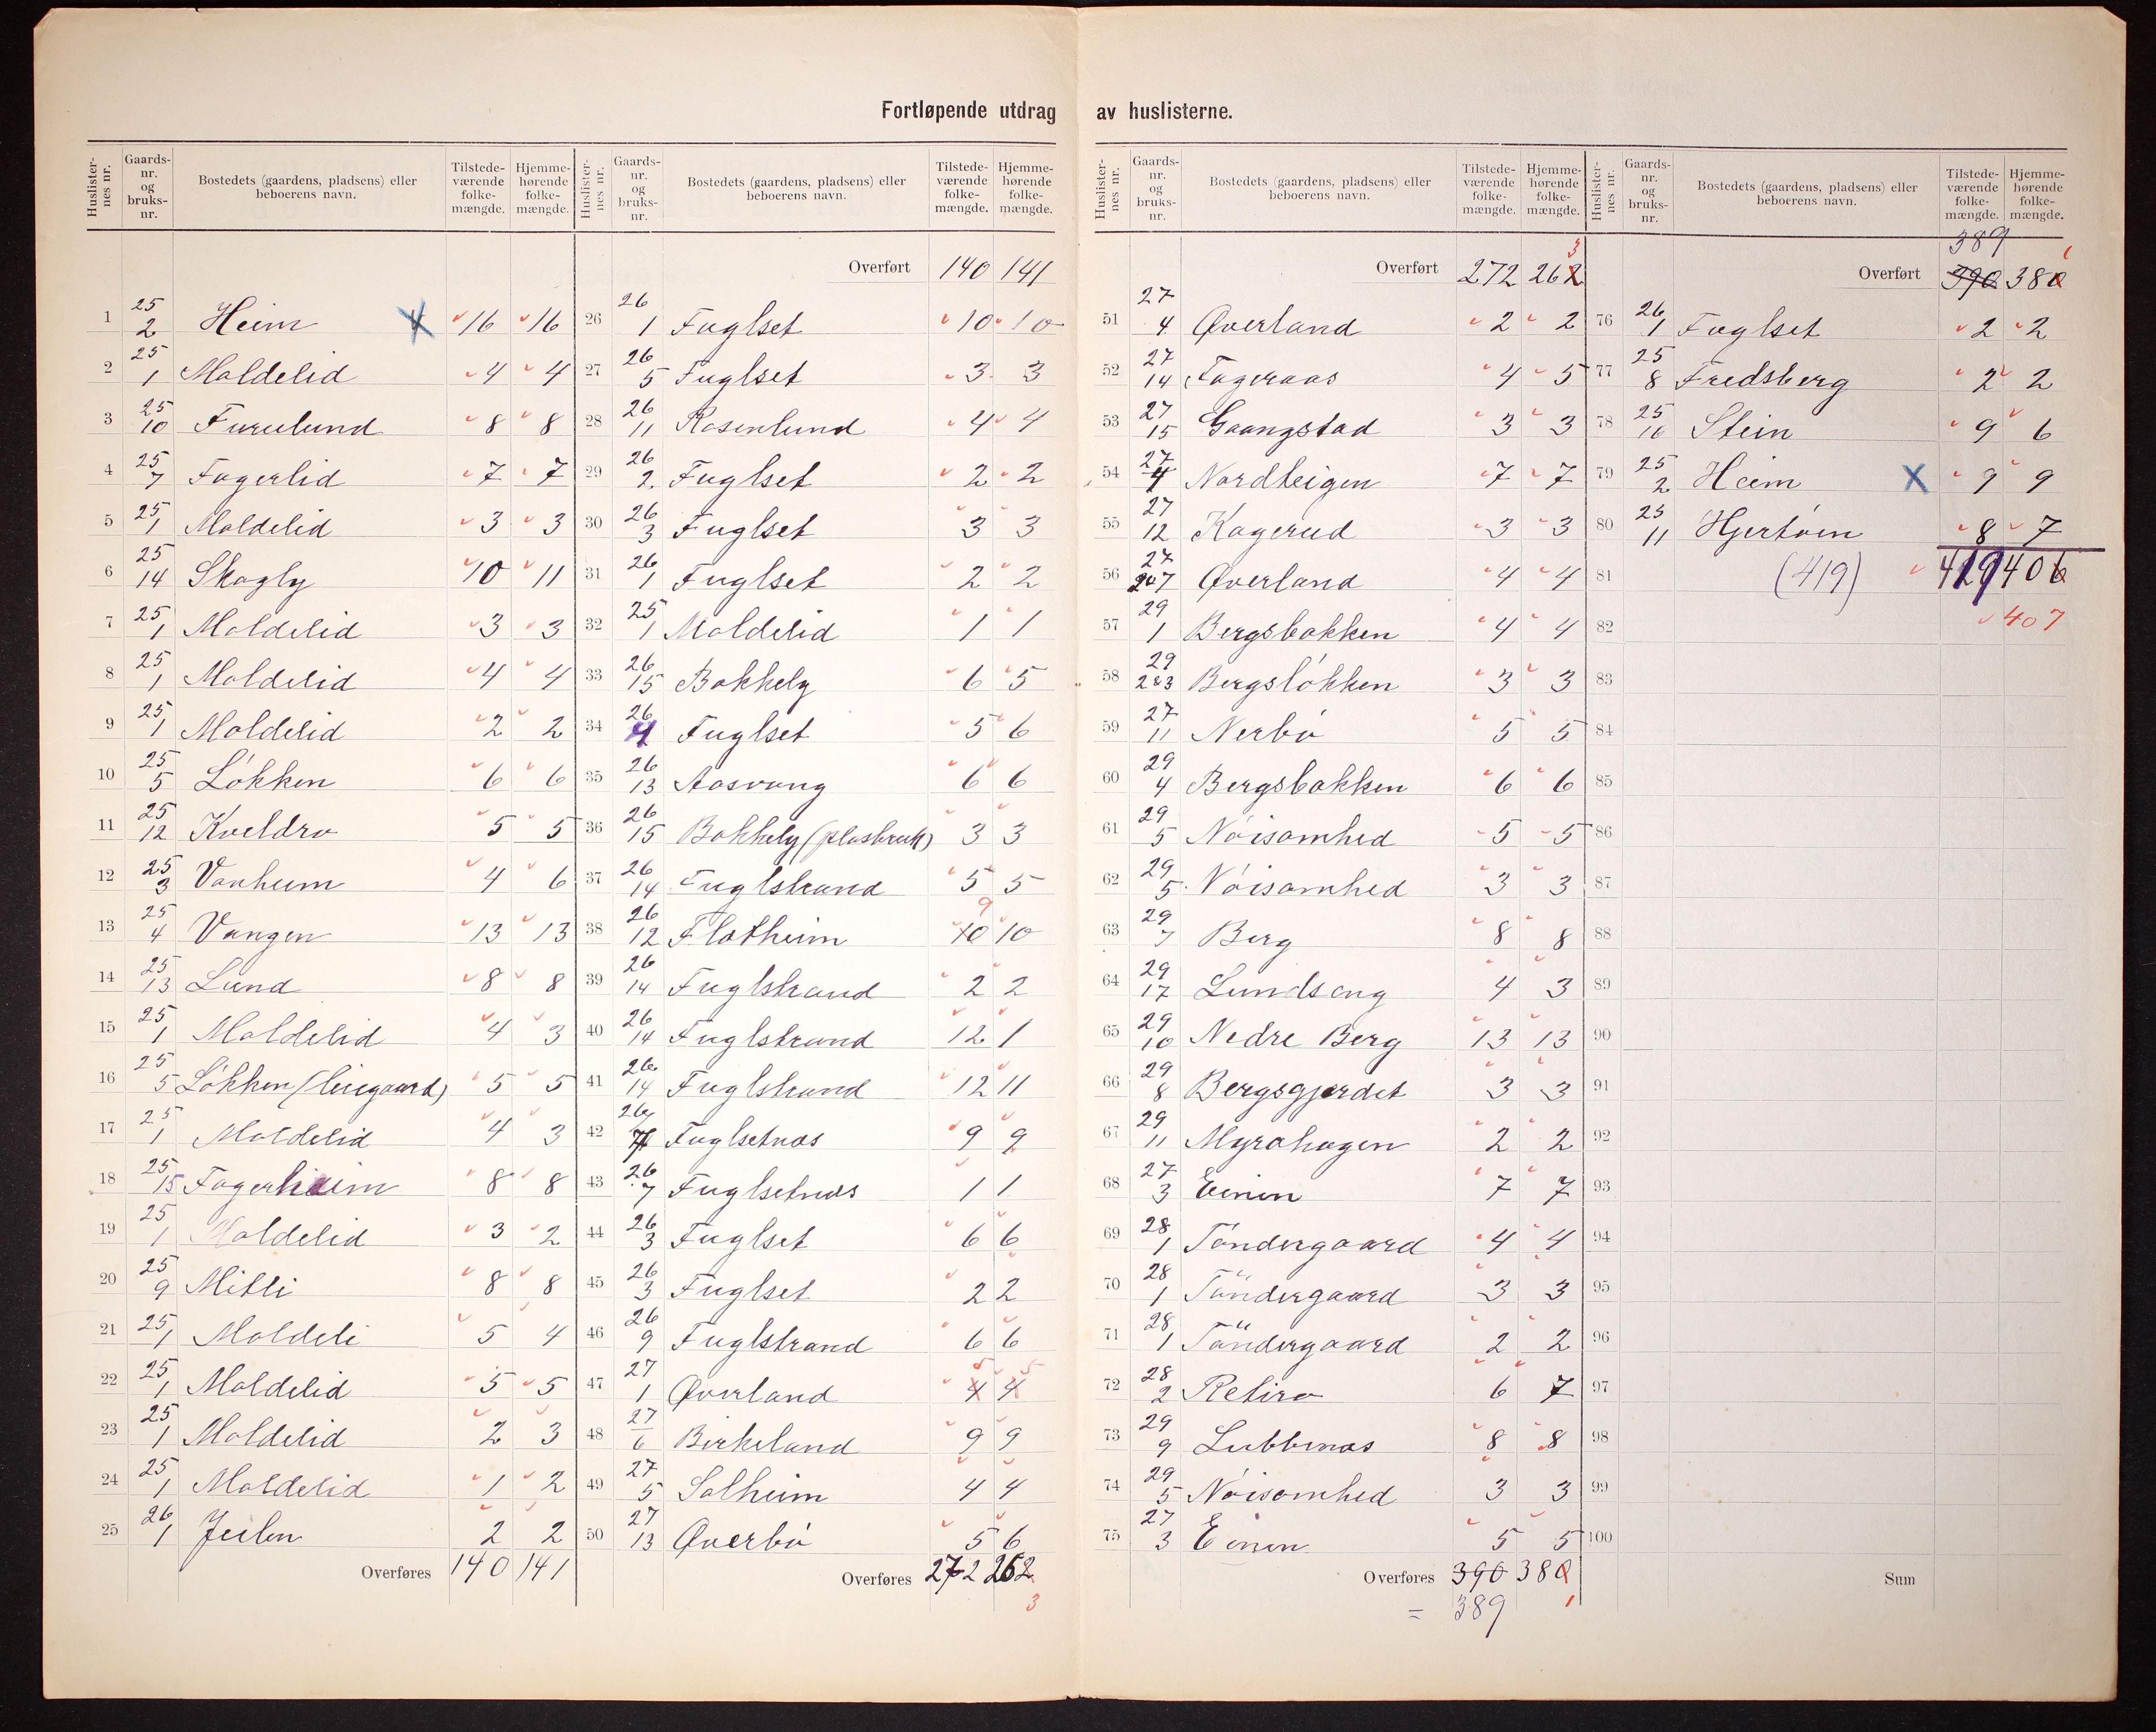 Fortløpende utdrag av huslisterne.
Huslister-nes nr. | Gaards-nr. og bruks-nr. | Bostedets (gaardens, pladsens) eller beboerens navn. | Tilstede-værende folke-mængde. | Hjemme-hørende folke-mængde.
1 25/2 Heim X 16 16
2 25/1 Moldelid 4 4
3 25/10 Furulund 8 8
4 25/7 Fagerlid 7 7
5 25/1 Moldelid 3 3
6 25/14 Skogly 10 11
7 25/1 Moldelid 3 3
8 25/1 Moldelid 4 4
9 25/1 Moldelid 2 2
10 25/5 Løkken 6 6
11 25/12 Kveldro 5 5
12 25/3 Vonheim 4 6
13 25/4 Vangen 13 13
14 25/13 Lund 8 8
15 25/1 Moldelid 4 3
16 25/5 Løkken (leiegaard) 5 5
17 25/1 Moldelid 4 3
18 25/15 Fagerheim 8 8
19 25/1 Moldelid 3 2
20 25/9 Mitli 8 8
21 25/1 Moldeli 5 4
22 25/1 Moldelid 5 5
23 25/1 Moldelid 2 3
24 25/1 Moldelid 1 2
25 26/1 Jeilen 2 2
Overføres 140 141
Huslister-nes nr. | Gaards-nr. og bruks-nr. | Bostedets (gaardens, pladsens) eller beboerens navn. | Tilstede-værende folke-mængde. | Hjemme-hørende folke-mængde.
Overført 140 141
26 26/1 Fuglset 10 10
27 26/5 Fuglset 3 3
28 26/11 Rosenlund 4 4
29 26/2 Fuglset 2 2
30 26/3 Fuglset 3 3
31 26/1 Fuglset 2 2
32 25/1 Moldelid 1 1
33 26/15 Bakkely 6 5
34 26/4 Fuglset 5 6
35 26/13 Aasvang 6 6
36 26/15 Bakkely (plasbruk) 3 3
37 26/14 Fuglstrand 5 5
38 26/12 Flatheim 10 9 10
39 26/14 Fuglstrand 2 2
40 26/14 Fuglstrand 12 1
41 26/14 Fuglstrand 12 11
42 26/7 Fuglsetnæs 9 9
43 26/7 Fuglsetnæs 1 1
44 26/3 Fuglset 6 6
45 26/3 Fuglset 2 2
46 26/9 Fuglstrand 6 6
47 27/1 Øverland 4 5 4 5
48 27/6 Birkeland 9 9
49 27/5 Solheim 4 4
50 27/13 Øverbø 5 6
Overføres 272 262
3
Huslister-nes nr. | Gaards-nr. og bruks-nr. | Bostedets (gaardens, pladsens) eller beboerens navn. | Tilstede-værende folke-mængde. | Hjemme-hørende folke-mængde.
Overført 272 262 3
51 27/4 Øverland 2 2
52 27/14 Fageraas 4 5
53 27/15 Gaangstad 3 3
54 27/4 Nordteigen 7 7
55 27/12 Kagerud 3 3
56 27/2&7 Øverland 4 4
57 29/1 Bergsbakken 4 4
58 29/2&3 Bergsløkken 3 3
59 27/11 Nerbø 5 5
60 29/4 Bergsbakken 6 6
61 29/5 Nøisomhed 5 5
62 29/5 Nøisomhed 3 3
63 29/7 Berg 8 8
64 29/17 Lundseng 4 3
65 29/10 Nedre Berg 13 13
66 29/8 Bergsgjerdet 3 3
67 29/11 Myrahagen 2 2
68 27/3 Einen 7 7
69 28/1 Tøndergaard 4 4
70 28/1 Tøndergaard 3 3
71 28/1 Tøndergaard 2 2
72 28/2 Retiro 6 7
73 29/9 Lubbenæs 8 8
74 29/5 Nøisomhed 3 3
75 27/3 Einen 5 5
Overføres 390 380
= 389 1
Huslister-nes nr. | Gaards-nr. og bruks-nr. | Bostedets (gaardens, pladsens) eller beboerens navn. | Tilstede-værende folke-mængde. | Hjemme-hørende folke-mængde.
389 1
Overført 390 380
76 26/1 Fuglset 2 2
77 25/8 Fredsberg 2 2
78 25/16 Stein 9 6
79 25/2 Heim X 9 9
80 25/11 Hjertøen 8 7
81 (419) 419 406
82 407
83
84
85
86
87
88
89
90
91
92
93
94
95
96
97
98
99
100
Sum